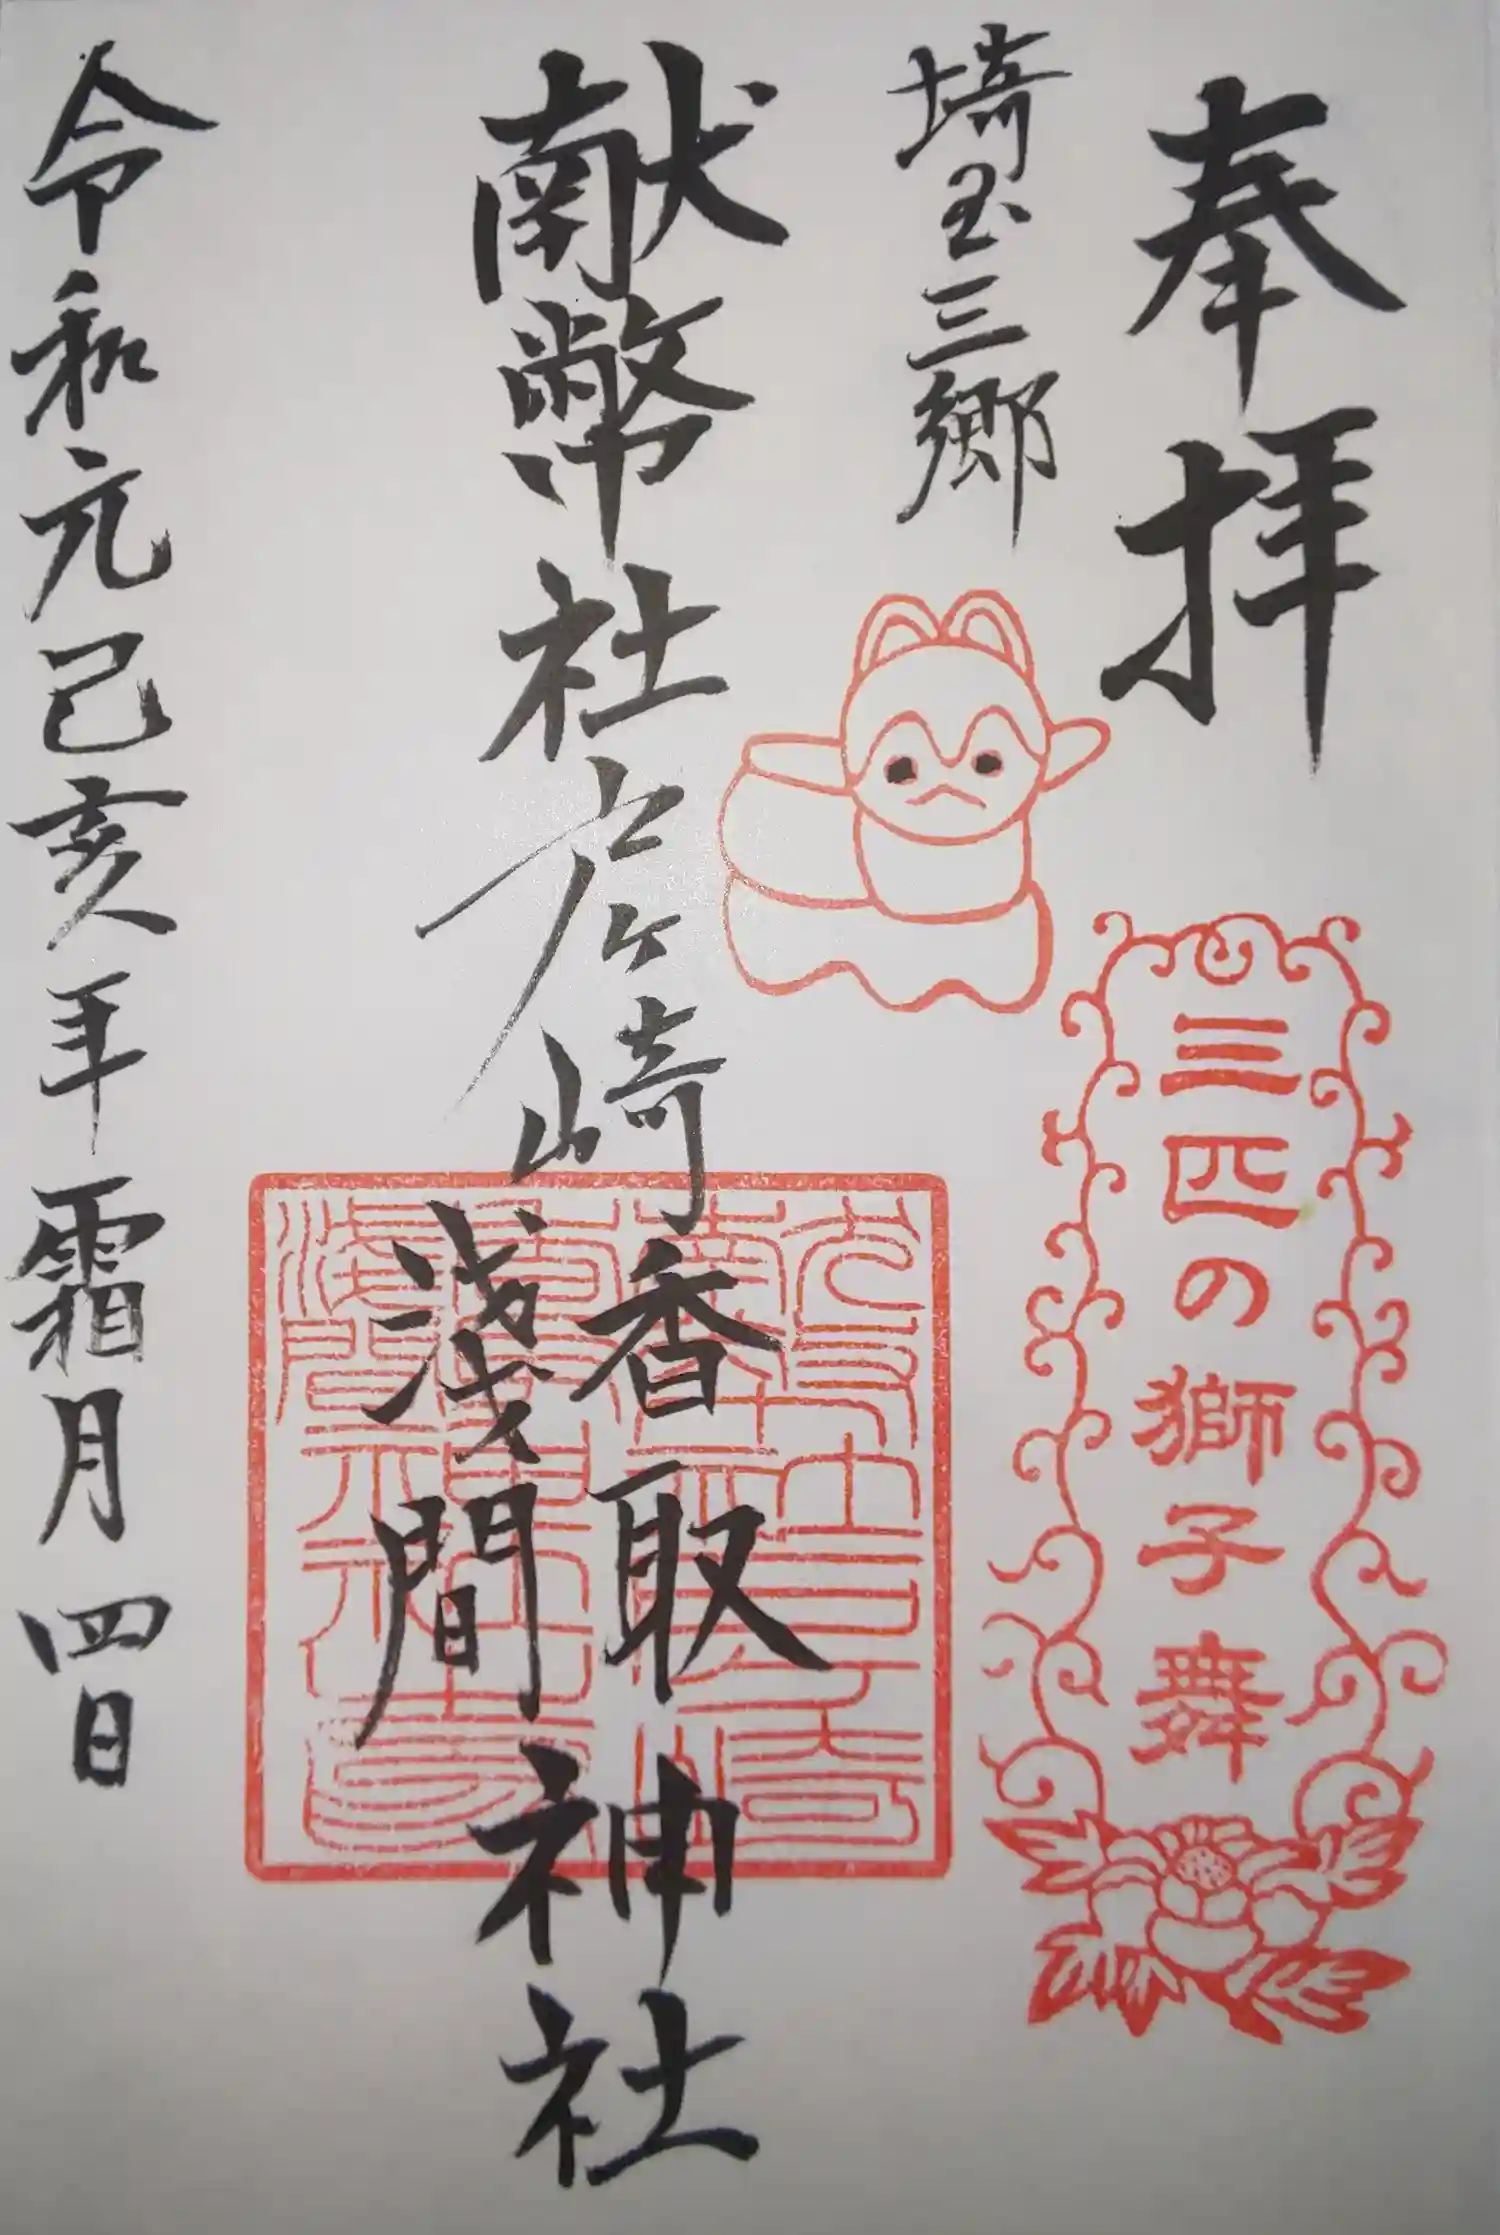 奉拝
埼玉三郷
献幣社戸ヶ﨑香取
淺間
神社
令和元己亥年霜月四日
三匹の獅子舞